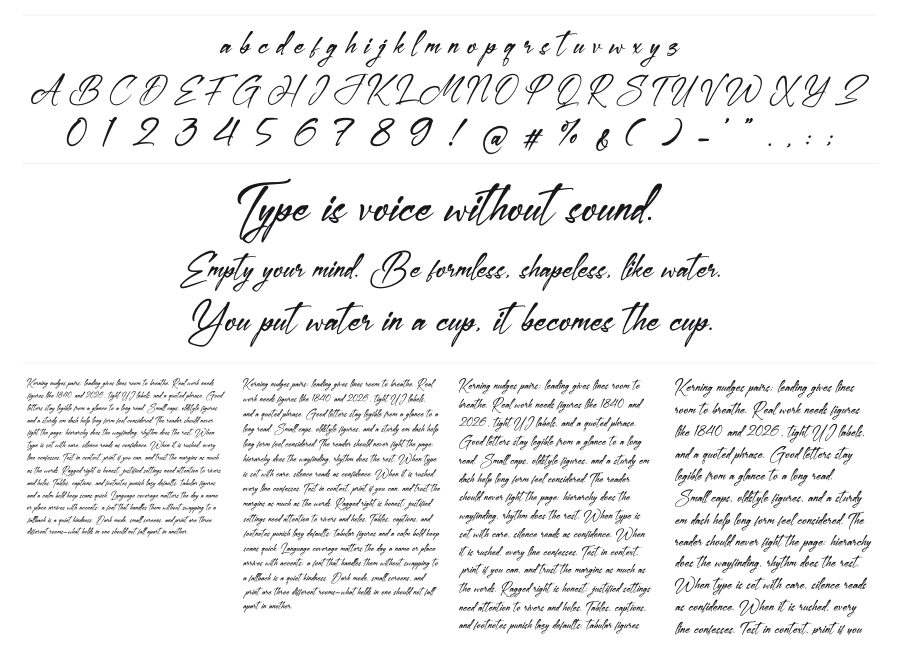 a b c d e f g h i j k l m n o p q r s t u v w x y z
A B C D E F G H I J K L M N O P Q R S T U V W X Y Z
0 1 2 3 4 5 6 7 8 9 ! @ # % & ( ) - ' " . , : ;
Type is voice without sound.
Empty your mind. Be formless, shapeless, like water.
You put water in a cup, it becomes the cup.
Kerning nudges pairs; leading gives lines room to breathe. Real work needs
figures like 1840 and 2026, tight UJ labels, and a quoted phrase. Good
letters stay legible from a glance to a long read. Small caps, oldstyle figures,
and a sturdy em dash help long form feel considered. The reader should never
fight the page: hierarchy does the wayfinding, rhythm does the rest. When
type is set with care, silence reads as confidence. When it is rushed, every
line confesses. Test in context, print if you can, and trust the margins as much
as the words. Ragged right is honest; justified settings need attention to rivers
and holes. Tables, captions, and footnotes punish lazy defaults; tabular figures
and a calm bold keep scans quick. Language coverage matters the day a name
or place arrives with accents; a font that handles them without swapping to a
fallback is a quiet kindness. Dark mode, small screens, and print are three
different rooms—what holds in one should not fall apart in another.
Kerning nudges pairs; leading gives lines room to breathe. Real
work needs figures like 1840 and 2026, tight UJ labels,
and a quoted phrase. Good letters stay legible from a glance to a
long read. Small caps, oldstyle figures, and a sturdy em dash help
long form feel considered. The reader should never fight the page:
hierarchy does the wayfinding, rhythm does the rest. When type
is set with care, silence reads as confidence. When it is rushed,
every line confesses. Test in context, print if you can, and trust the
margins as much as the words. Ragged right is honest; justified
settings need attention to rivers and holes. Tables, captions, and
footnotes punish lazy defaults; tabular figures and a calm bold keep
scans quick. Language coverage matters the day a name or place
arrives with accents; a font that handles them without swapping to
a fallback is a quiet kindness. Dark mode, small screens, and
print are three different rooms—what holds in one should not fall
apart in another.
Kerning nudges pairs; leading gives lines room to
breathe. Real work needs figures like 1840 and
2026, tight UJ labels, and a quoted phrase.
Good letters stay legible from a glance to a long
read. Small caps, oldstyle figures, and a sturdy em
dash help long form feel considered. The reader
should never fight the page: hierarchy does the
wayfinding, rhythm does the rest. When type is
set with care, silence reads as confidence. When
it is rushed, every line confesses. Test in context,
print if you can, and trust the margins as much as
the words. Ragged right is honest; justified settings
need attention to rivers and holes. Tables, captions,
and footnotes punish lazy defaults; tabular figures
Kerning nudges pairs; leading gives lines
room to breathe. Real work needs figures
like 1840 and 2026, tight UJ labels,
and a quoted phrase. Good letters stay
legible from a glance to a long read.
Small caps, oldstyle figures, and a sturdy
em dash help long form feel considered. The
reader should never fight the page: hierarchy
does the wayfinding, rhythm does the rest.
When type is set with care, silence reads
as confidence. When it is rushed, every
line confesses. Test in context, print if you